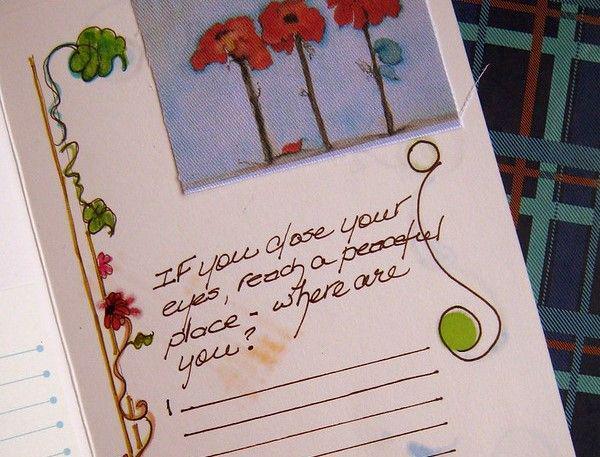 If you close your
eyes, reach a peaceful
place - where are
you?
1